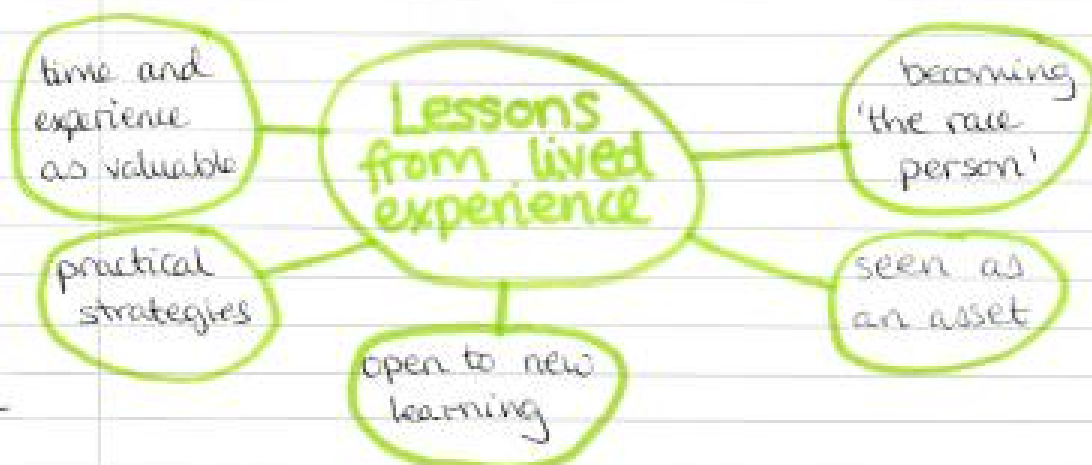 time and
experience
as valuable
Lessons
from lived
experience
becoming
'the race
person'
practical
strategies
open to new
learning
seen as
an asset